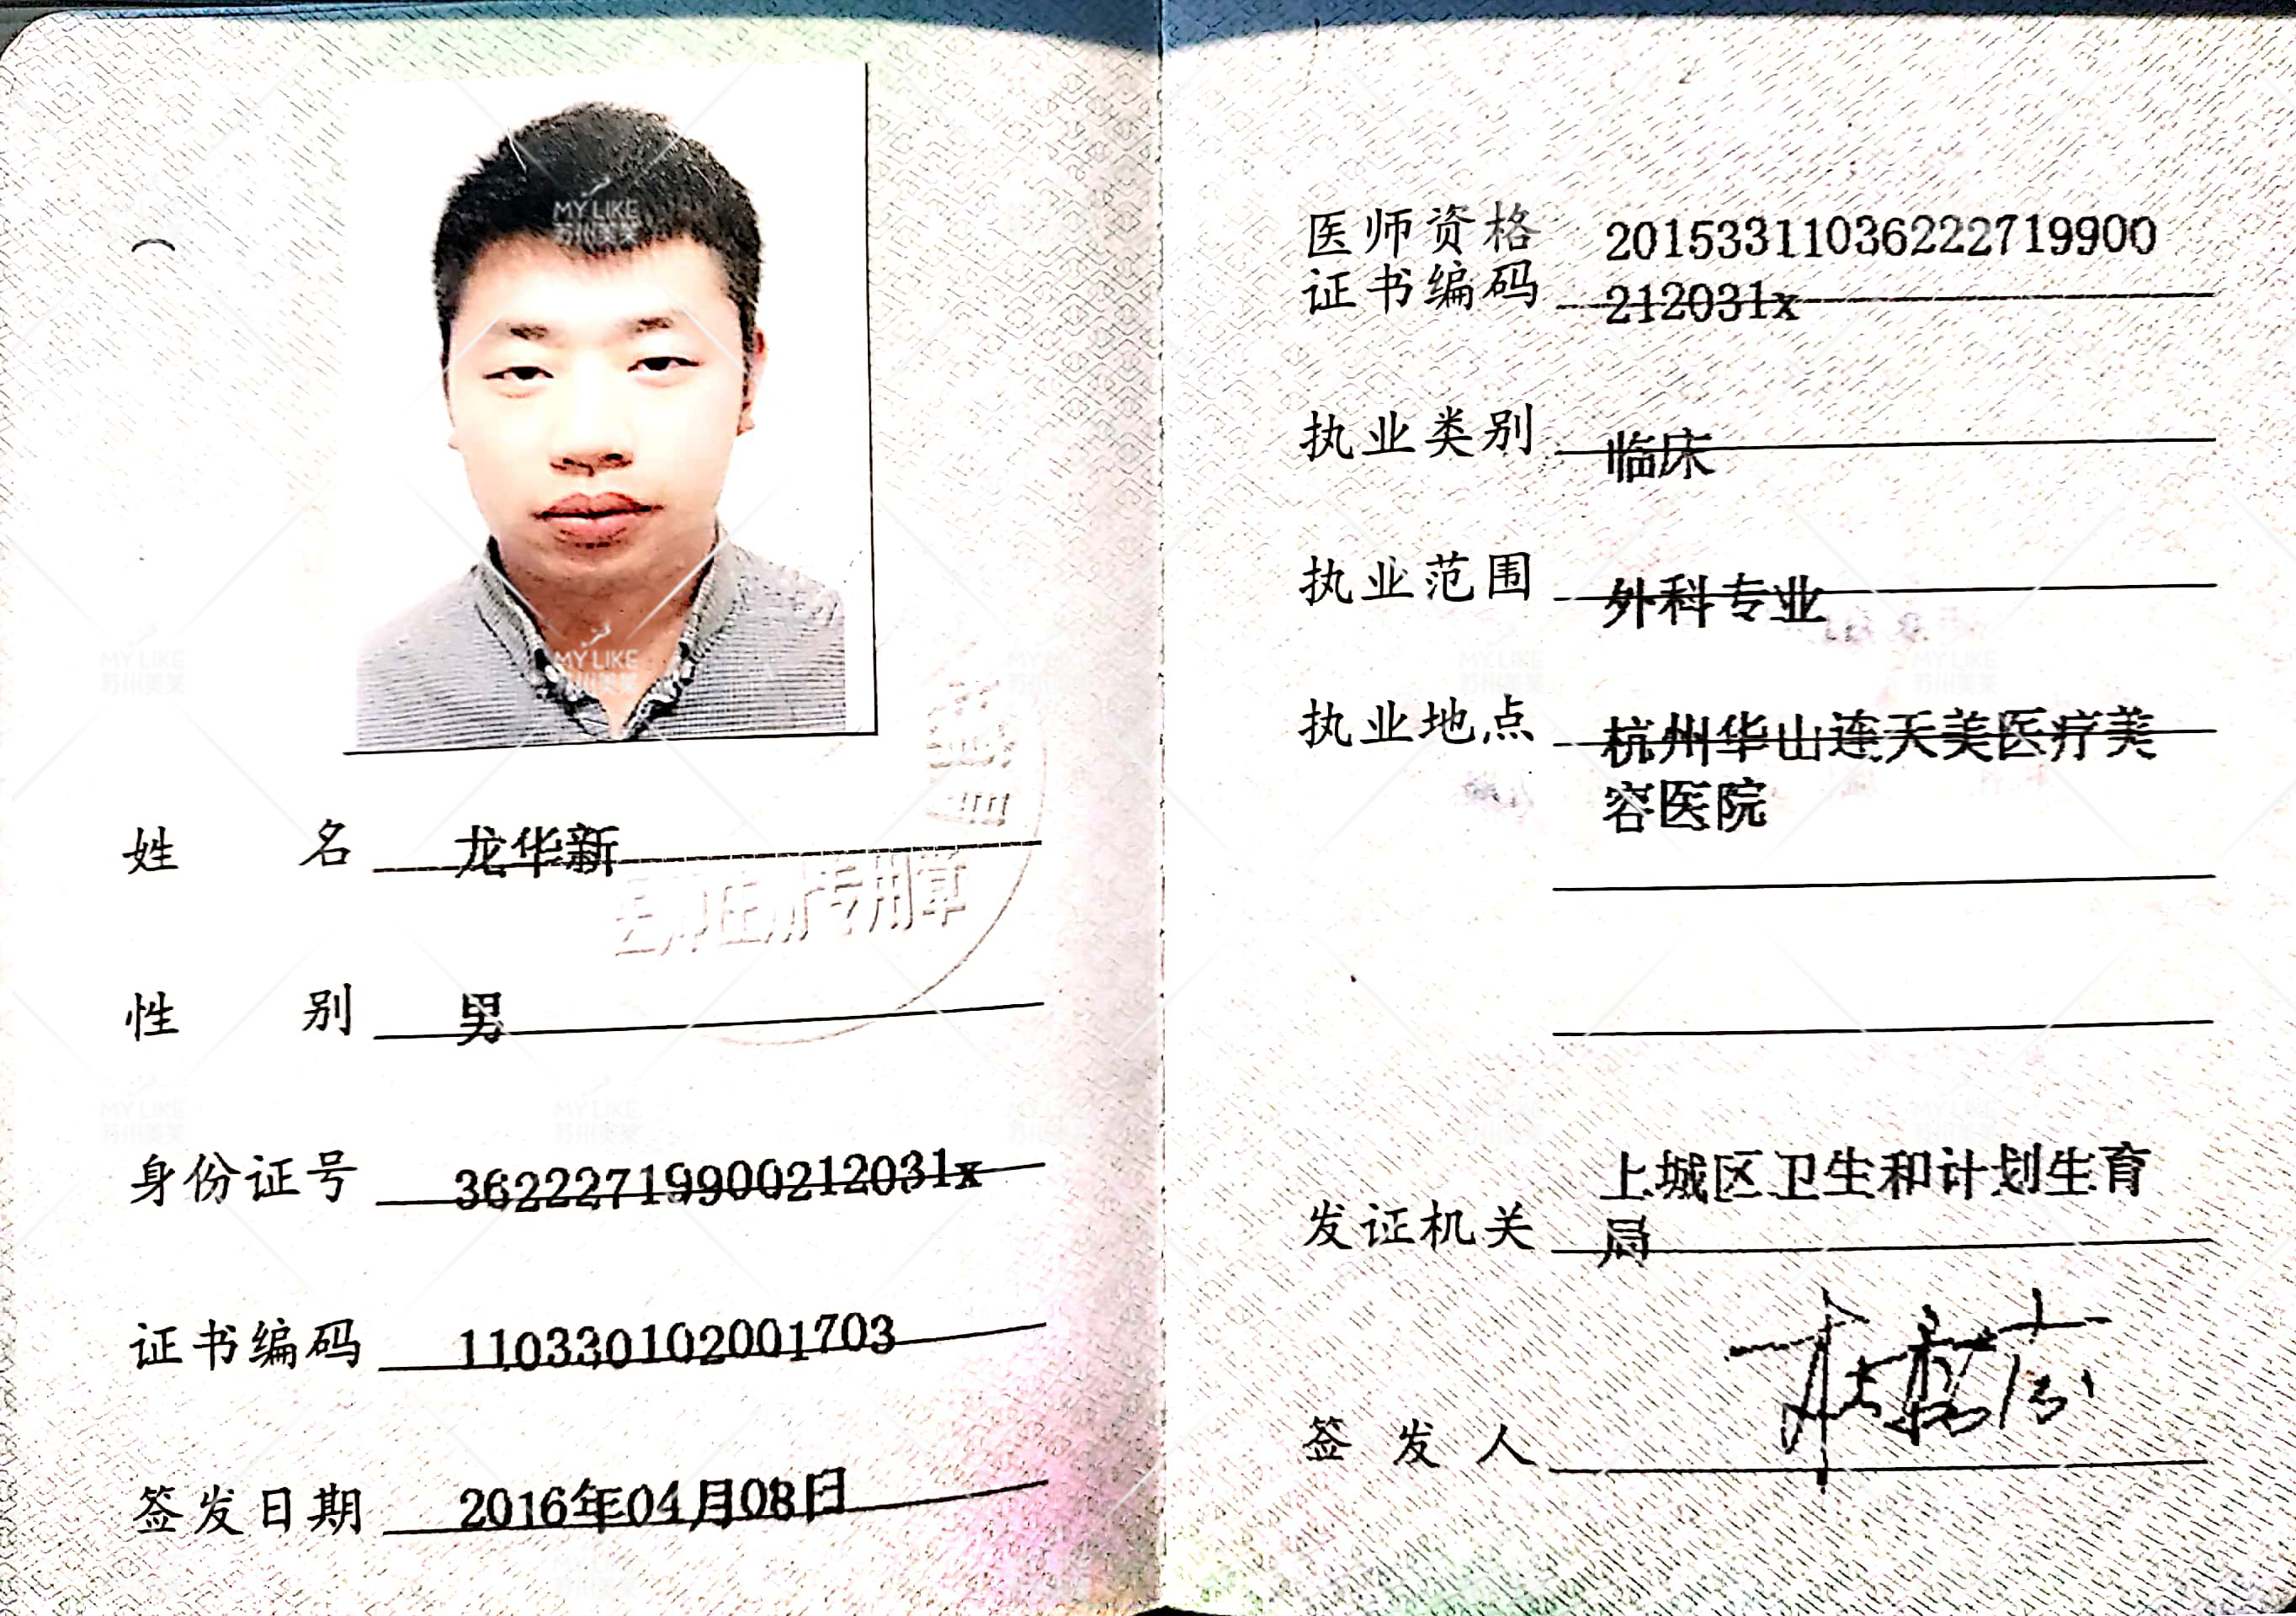 姓名 龙华新
性别 男
身份证号 36222719900212031x
证书编码 110330102001703
签发日期 2016年04月08日
医师资格
证书编码 20153311036222719900
212031x
执业类别 临床
执业范围 外科专业
执业地点 杭州华山连天美医疗美
容医院
发证机关 上城区卫生和计划生育
局
签发人
专用章
MY LIKE
苏州美莱